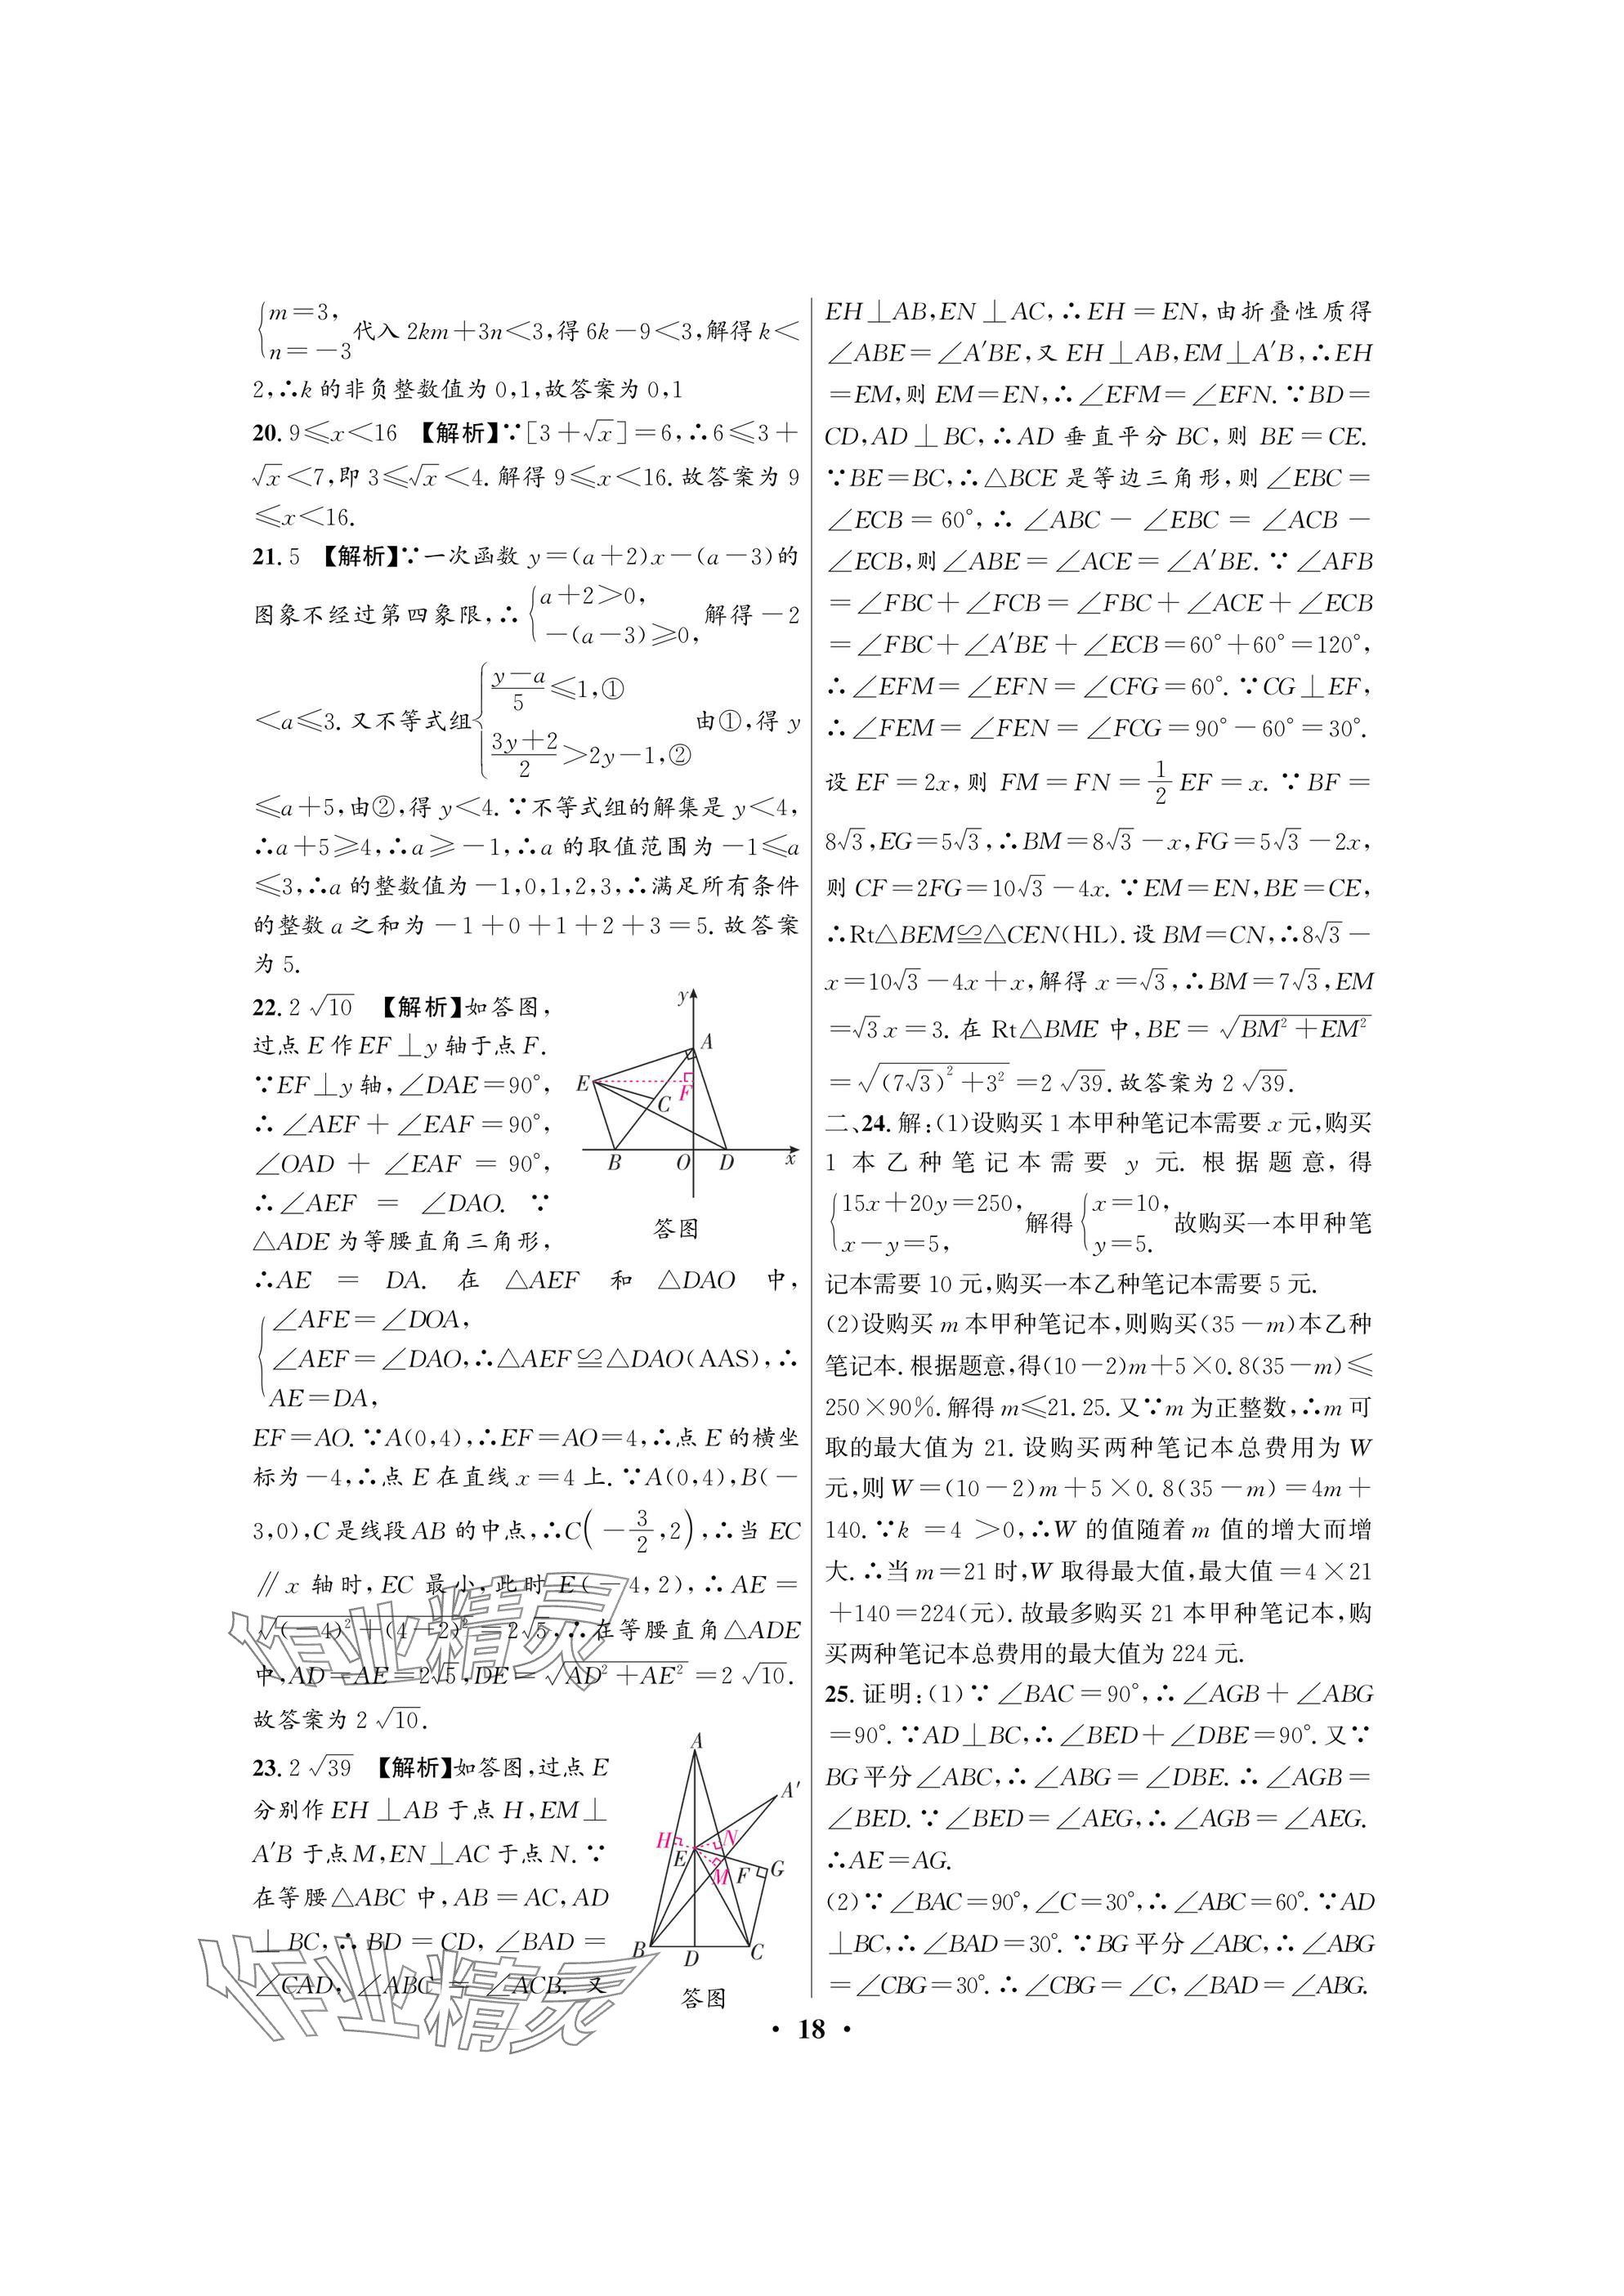 {m=3,
n=-3 代入 2km+3n<3,得 6k-9<3,解得 k<
2,∴k 的非负整数值为 0,1,故答案为 0,1
20. 9≤x<16 【解析】∵[3+√x]=6,∴6≤3+
√x<7,即 3≤√x<4. 解得 9≤x<16. 故答案为 9
≤x<16.
21. 5 【解析】∵一次函数 y=(a+2)x-(a-3)的
图象不经过第四象限,∴{a+2>0, -(a-3)≥0, 解得-2
<a≤3. 又不等式组{(y-a)/5≤1,① (3y+2)/2>2y-1,② 由①,得 y
≤a+5,由②,得 y<4. ∵不等式组的解集是 y<4,
∴a+5≥4,∴a≥-1,∴a 的取值范围为-1≤a
≤3,∴a 的整数值为-1,0,1,2,3,∴满足所有条件
的整数 a 之和为-1+0+1+2+3=5. 故答案
为 5.
22. 2√10 【解析】如答图,
过点 E 作 EF⊥y 轴于点 F.
∵EF⊥y 轴,∠DAE=90°,
∴∠AEF+∠EAF=90°,
∠OAD+∠EAF=90°,
∴∠AEF=∠DAO. ∵
△ADE 为等腰直角三角形,
y
A
E
F
C
B
O
D
x
答图
∴AE=DA. 在△AEF 和△DAO 中,
{∠AFE=∠DOA,
∠AEF=∠DAO,∴△AEF≌△DAO(AAS),∴
AE=DA,
EF=AO. ∵A(0,4),∴EF=AO=4,∴点 E 的横坐
标为-4,∴点 E 在直线 x=4 上. ∵A(0,4),B(-
3,0),C 是线段 AB 的中点,∴C(-3/2,2),∴当 EC
∥x 轴时,EC 最小,此时 E(-4,2),∴AE=
√((-4)²+(4-2)²)=2√5,∴在等腰直角△ADE
中,AD=AE=2√5,DE=√(AD²+AE²)=2√10.
故答案为 2√10.
23. 2√39 【解析】如答图,过点 E
分别作 EH⊥AB 于点 H,EM⊥
A′B 于点 M,EN⊥AC 于点 N. ∵
在等腰△ABC 中,AB=AC,AD
⊥BC,∴BD=CD,∠BAD=
∠CAD,∠ABC=∠ACB. 又
A
A′
H
N
E
M
F
G
B
D
C
答图
作业精灵
作业精灵
EH⊥AB,EN⊥AC,∴EH=EN,由折叠性质得
∠ABE=∠A′BE,又 EH⊥AB,EM⊥A′B,∴EH
=EM,则 EM=EN,∴∠EFM=∠EFN. ∵BD=
CD,AD⊥BC,∴AD 垂直平分 BC,则 BE=CE.
∵BE=BC,∴△BCE 是等边三角形,则∠EBC=
∠ECB=60°,∴∠ABC-∠EBC=∠ACB-
∠ECB,则∠ABE=∠ACE=∠A′BE. ∵∠AFB
=∠FBC+∠FCB=∠FBC+∠ACE+∠ECB
=∠FBC+∠A′BE+∠ECB=60°+60°=120°,
∴∠EFM=∠EFN=∠CFG=60°. ∵CG⊥EF,
∴∠FEM=∠FEN=∠FCG=90°-60°=30°.
设 EF=2x,则 FM=FN=1/2 EF=x. ∵BF=
8√3,EG=5√3,∴BM=8√3-x,FG=5√3-2x,
则 CF=2FG=10√3-4x. ∵EM=EN,BE=CE,
∴Rt△BEM≌△CEN(HL). 设 BM=CN,∴8√3-
x=10√3-4x+x,解得 x=√3,∴BM=7√3,EM
=√3x=3. 在 Rt△BME 中,BE=√(BM²+EM²)
=√((7√3)²+3²)=2√39. 故答案为 2√39.
二、24. 解:(1)设购买 1 本甲种笔记本需要 x 元,购买
1 本乙种笔记本需要 y 元. 根据题意,得
{15x+20y=250, x-y=5, 解得{x=10, y=5. 故购买一本甲种笔
记本需要 10 元,购买一本乙种笔记本需要 5 元.
(2)设购买 m 本甲种笔记本,则购买(35-m)本乙种
笔记本. 根据题意,得(10-2)m+5×0.8(35-m)≤
250×90%. 解得 m≤21.25. 又∵m 为正整数,∴m 可
取的最大值为 21. 设购买两种笔记本总费用为 W
元,则 W=(10-2)m+5×0.8(35-m)=4m+
140. ∵k=4>0,∴W 的值随着 m 值的增大而增
大. ∴当 m=21 时,W 取得最大值,最大值=4×21
+140=224(元). 故最多购买 21 本甲种笔记本,购
买两种笔记本总费用的最大值为 224 元.
25. 证明:(1)∵∠BAC=90°,∴∠AGB+∠ABG
=90°. ∵AD⊥BC,∴∠BED+∠DBE=90°. 又∵
BG 平分∠ABC,∴∠ABG=∠DBE. ∴∠AGB=
∠BED. ∵∠BED=∠AEG,∴∠AGB=∠AEG.
∴AE=AG.
(2)∵∠BAC=90°,∠C=30°,∴∠ABC=60°. ∵AD
⊥BC,∴∠BAD=30°. ∵BG 平分∠ABC,∴∠ABG
=∠CBG=30°. ∴∠CBG=∠C,∠BAD=∠ABG.
· 18 ·